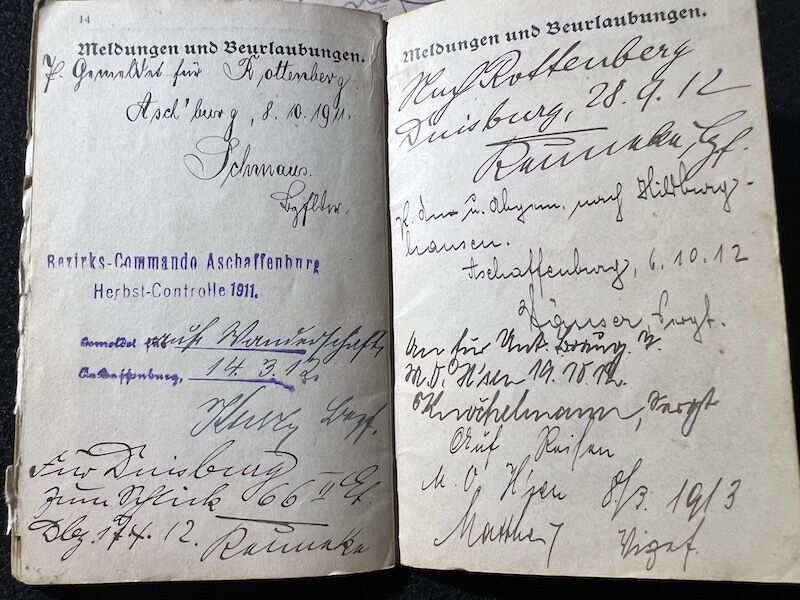 14
Meldungen und Beurlaubungen.
P. Gemeldet für Rottenberg
Asch'burg, 8.10.1911.
Schmaus.
Bezirks-Commando Aschaffenburg
Herbst-Controlle 1911.
Gemeldet für auf Wanderschaft
Aschaffenburg, 14.3.12.
Kurz Bezf.
Für Duisburg
zum Schlick 66 II Et
Dbg. 17.4.12.
Reuneke
Meldungen und Beurlaubungen.
Nach Rottenberg
Duisburg, 28.9.12
Reuneke,
u. Abgem. nach Hildburg-
hausen.
Aschaffenburg, 6.10.12
Sergt.
An für
M.O. H'sen 19.10.12.
Knöchelmann, Sergt
Auf Reisen
M.O. H'sen 8/3. 1913
Vizef.